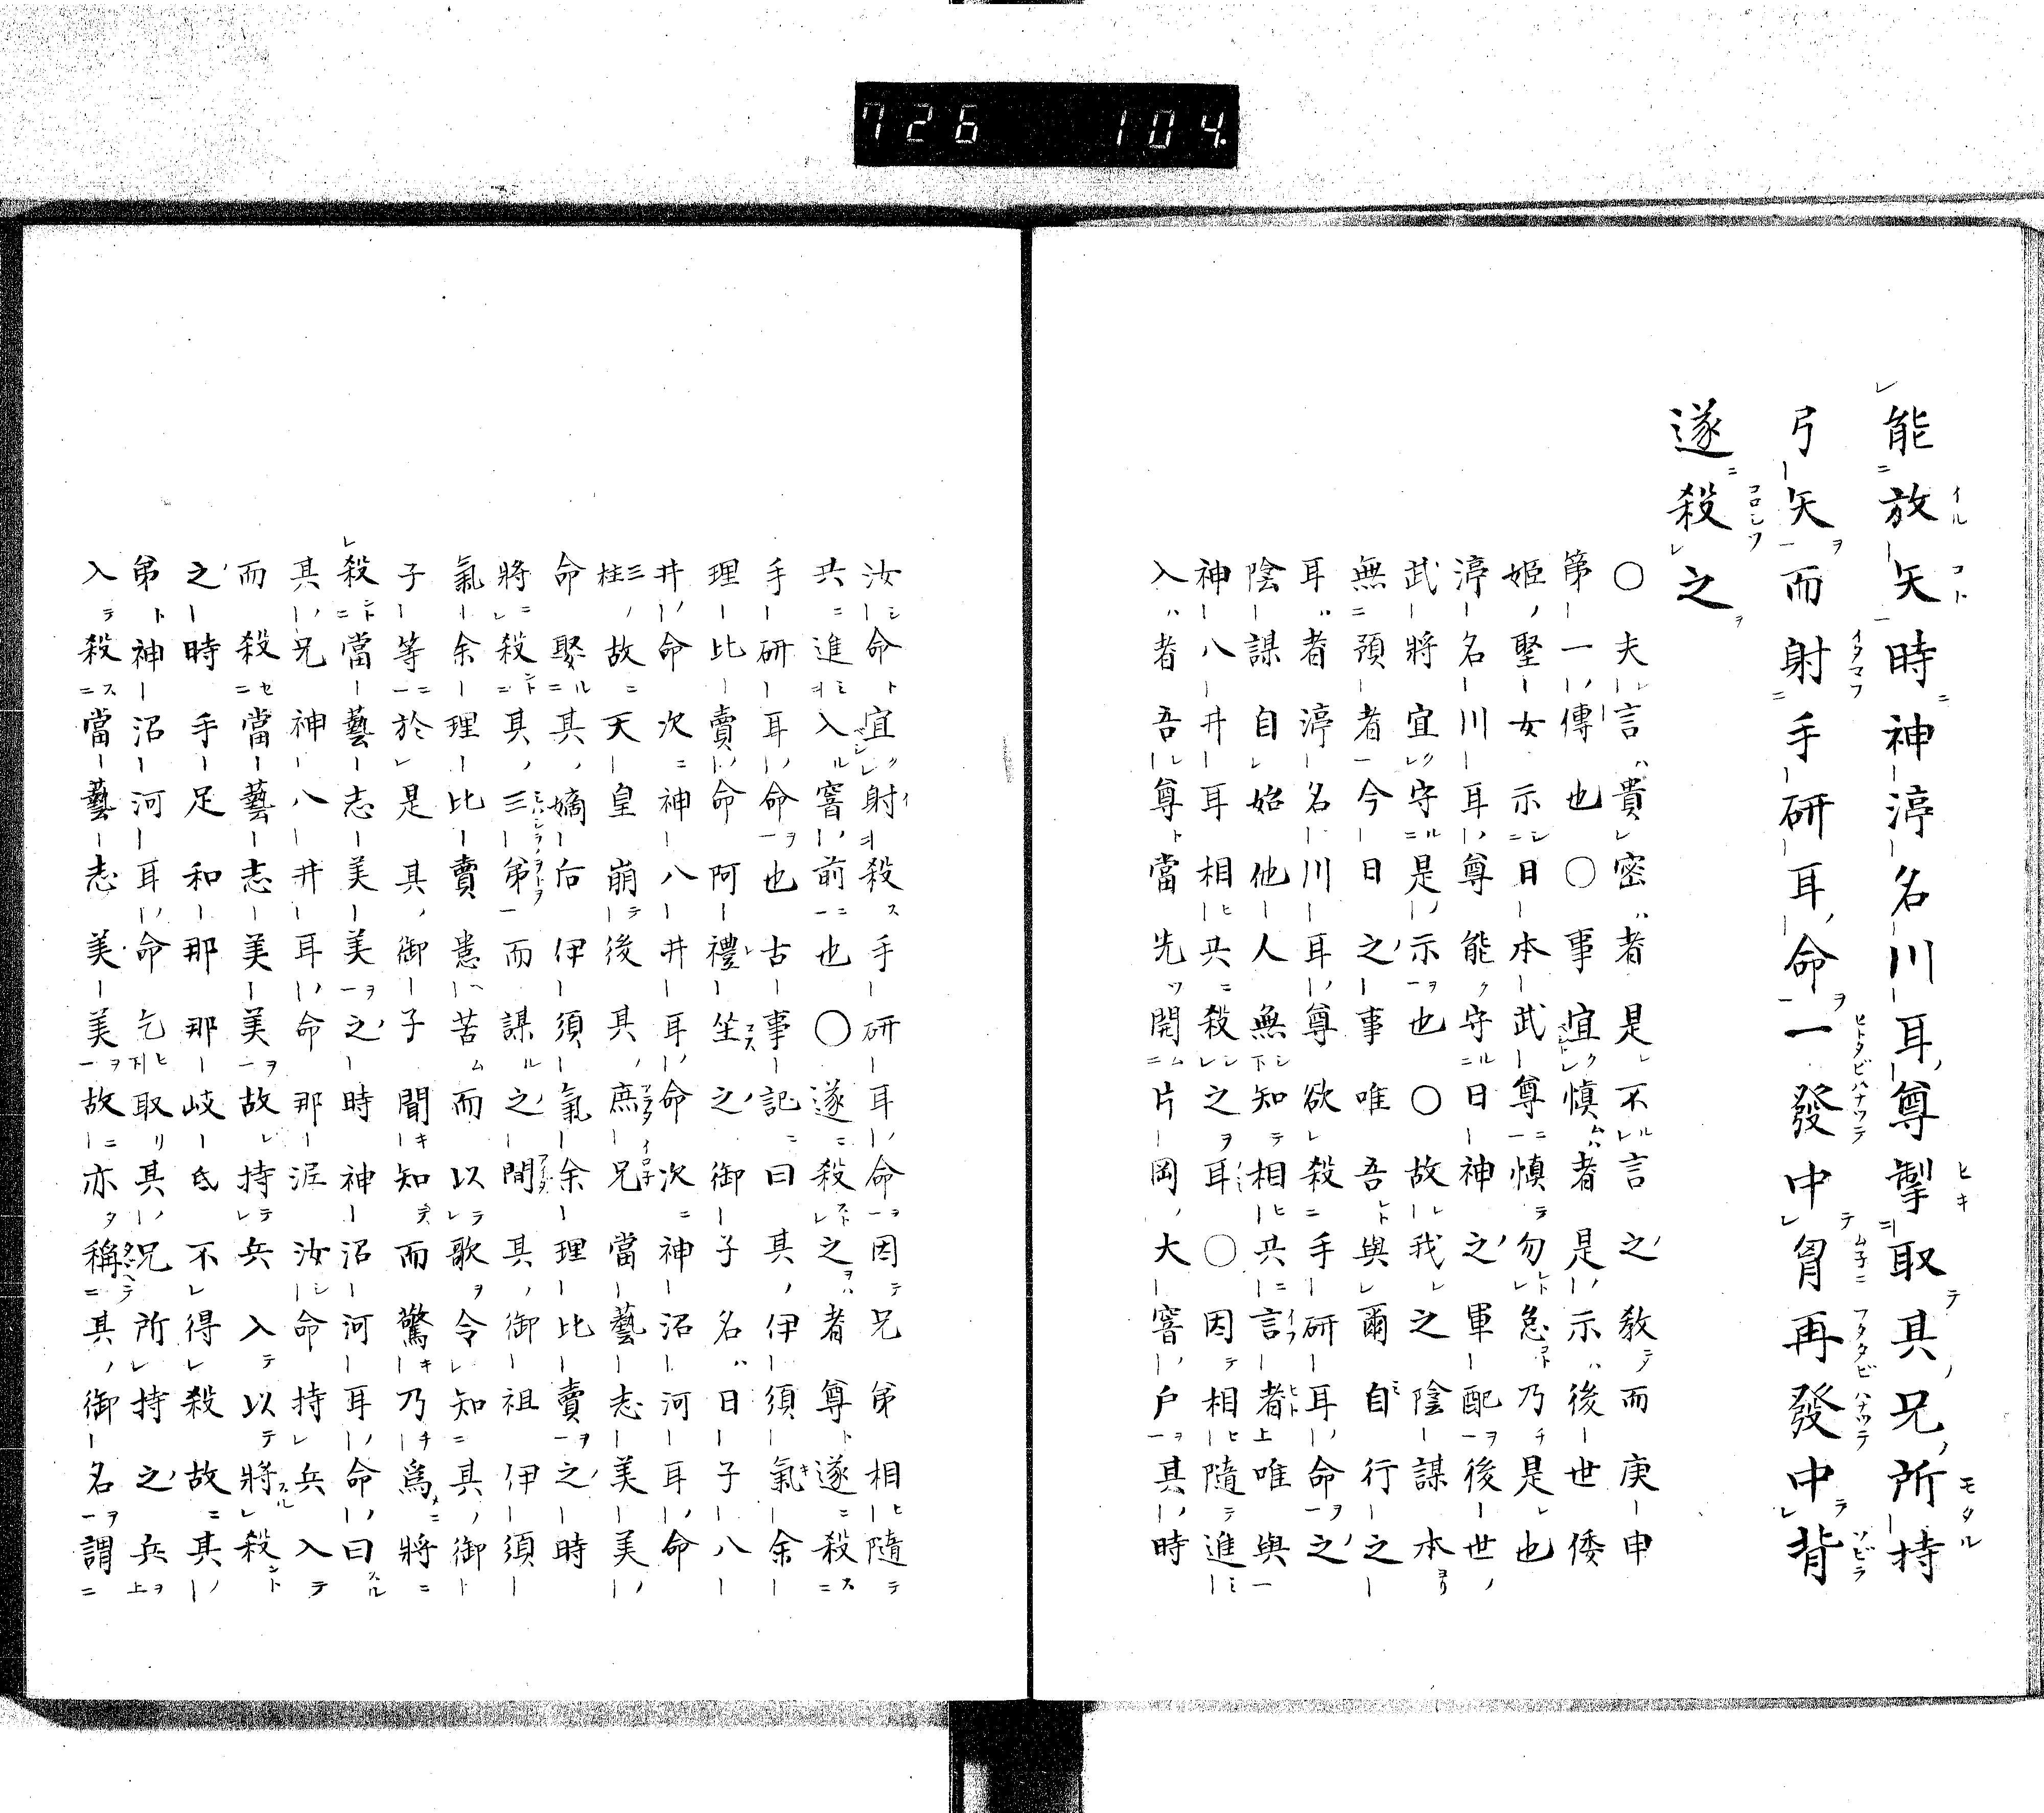 726 104.
能放矢時神渟名川耳尊掣取其兄所持
弓矢而射手研耳命一發中胷再發中背
遂殺之
〇夫言貴密者是不言之教而庚申
第一傳也〇事宜慎者是示後世倭
姬聖女示日本武尊慎勿怠乃是也
渟名川耳尊能守日神之軍配後世
武將宜守是示也〇故我之陰謀本
無預者今日之事唯吾與爾自行之
耳者渟名川耳尊欲殺手研耳命之
陰謀自始他人無知相共言者唯與
神八井耳相共殺之耳〇因相隨進
入者吾尊當先開片岡大窨戶其時
汝命宜射殺手研耳命因兄弟相隨
共進入窨前也〇遂殺之者尊遂殺
手研耳命也古事記曰其伊須氣余
理比賣命阿禮坐之御子名日子八
井命次神八井耳命次神沼河耳命
三柱故天皇崩後其庶兄當藝志美美
命娶其嫡后伊須氣余理比賣之時
將殺其三弟而謀之間其御祖伊須
氣余理比賣患苦而以歌令知其御
子等於是其御子聞知而驚乃爲將
殺當藝志美美之時神沼河耳命曰
其兄神八井耳命那泥汝命持兵入
而殺當藝志美美故持兵入以將殺
之時手足和那那岐氐不得殺故其
弟神沼河耳命乞取其兄所持之兵
入殺當藝志美美故亦稱其御名謂